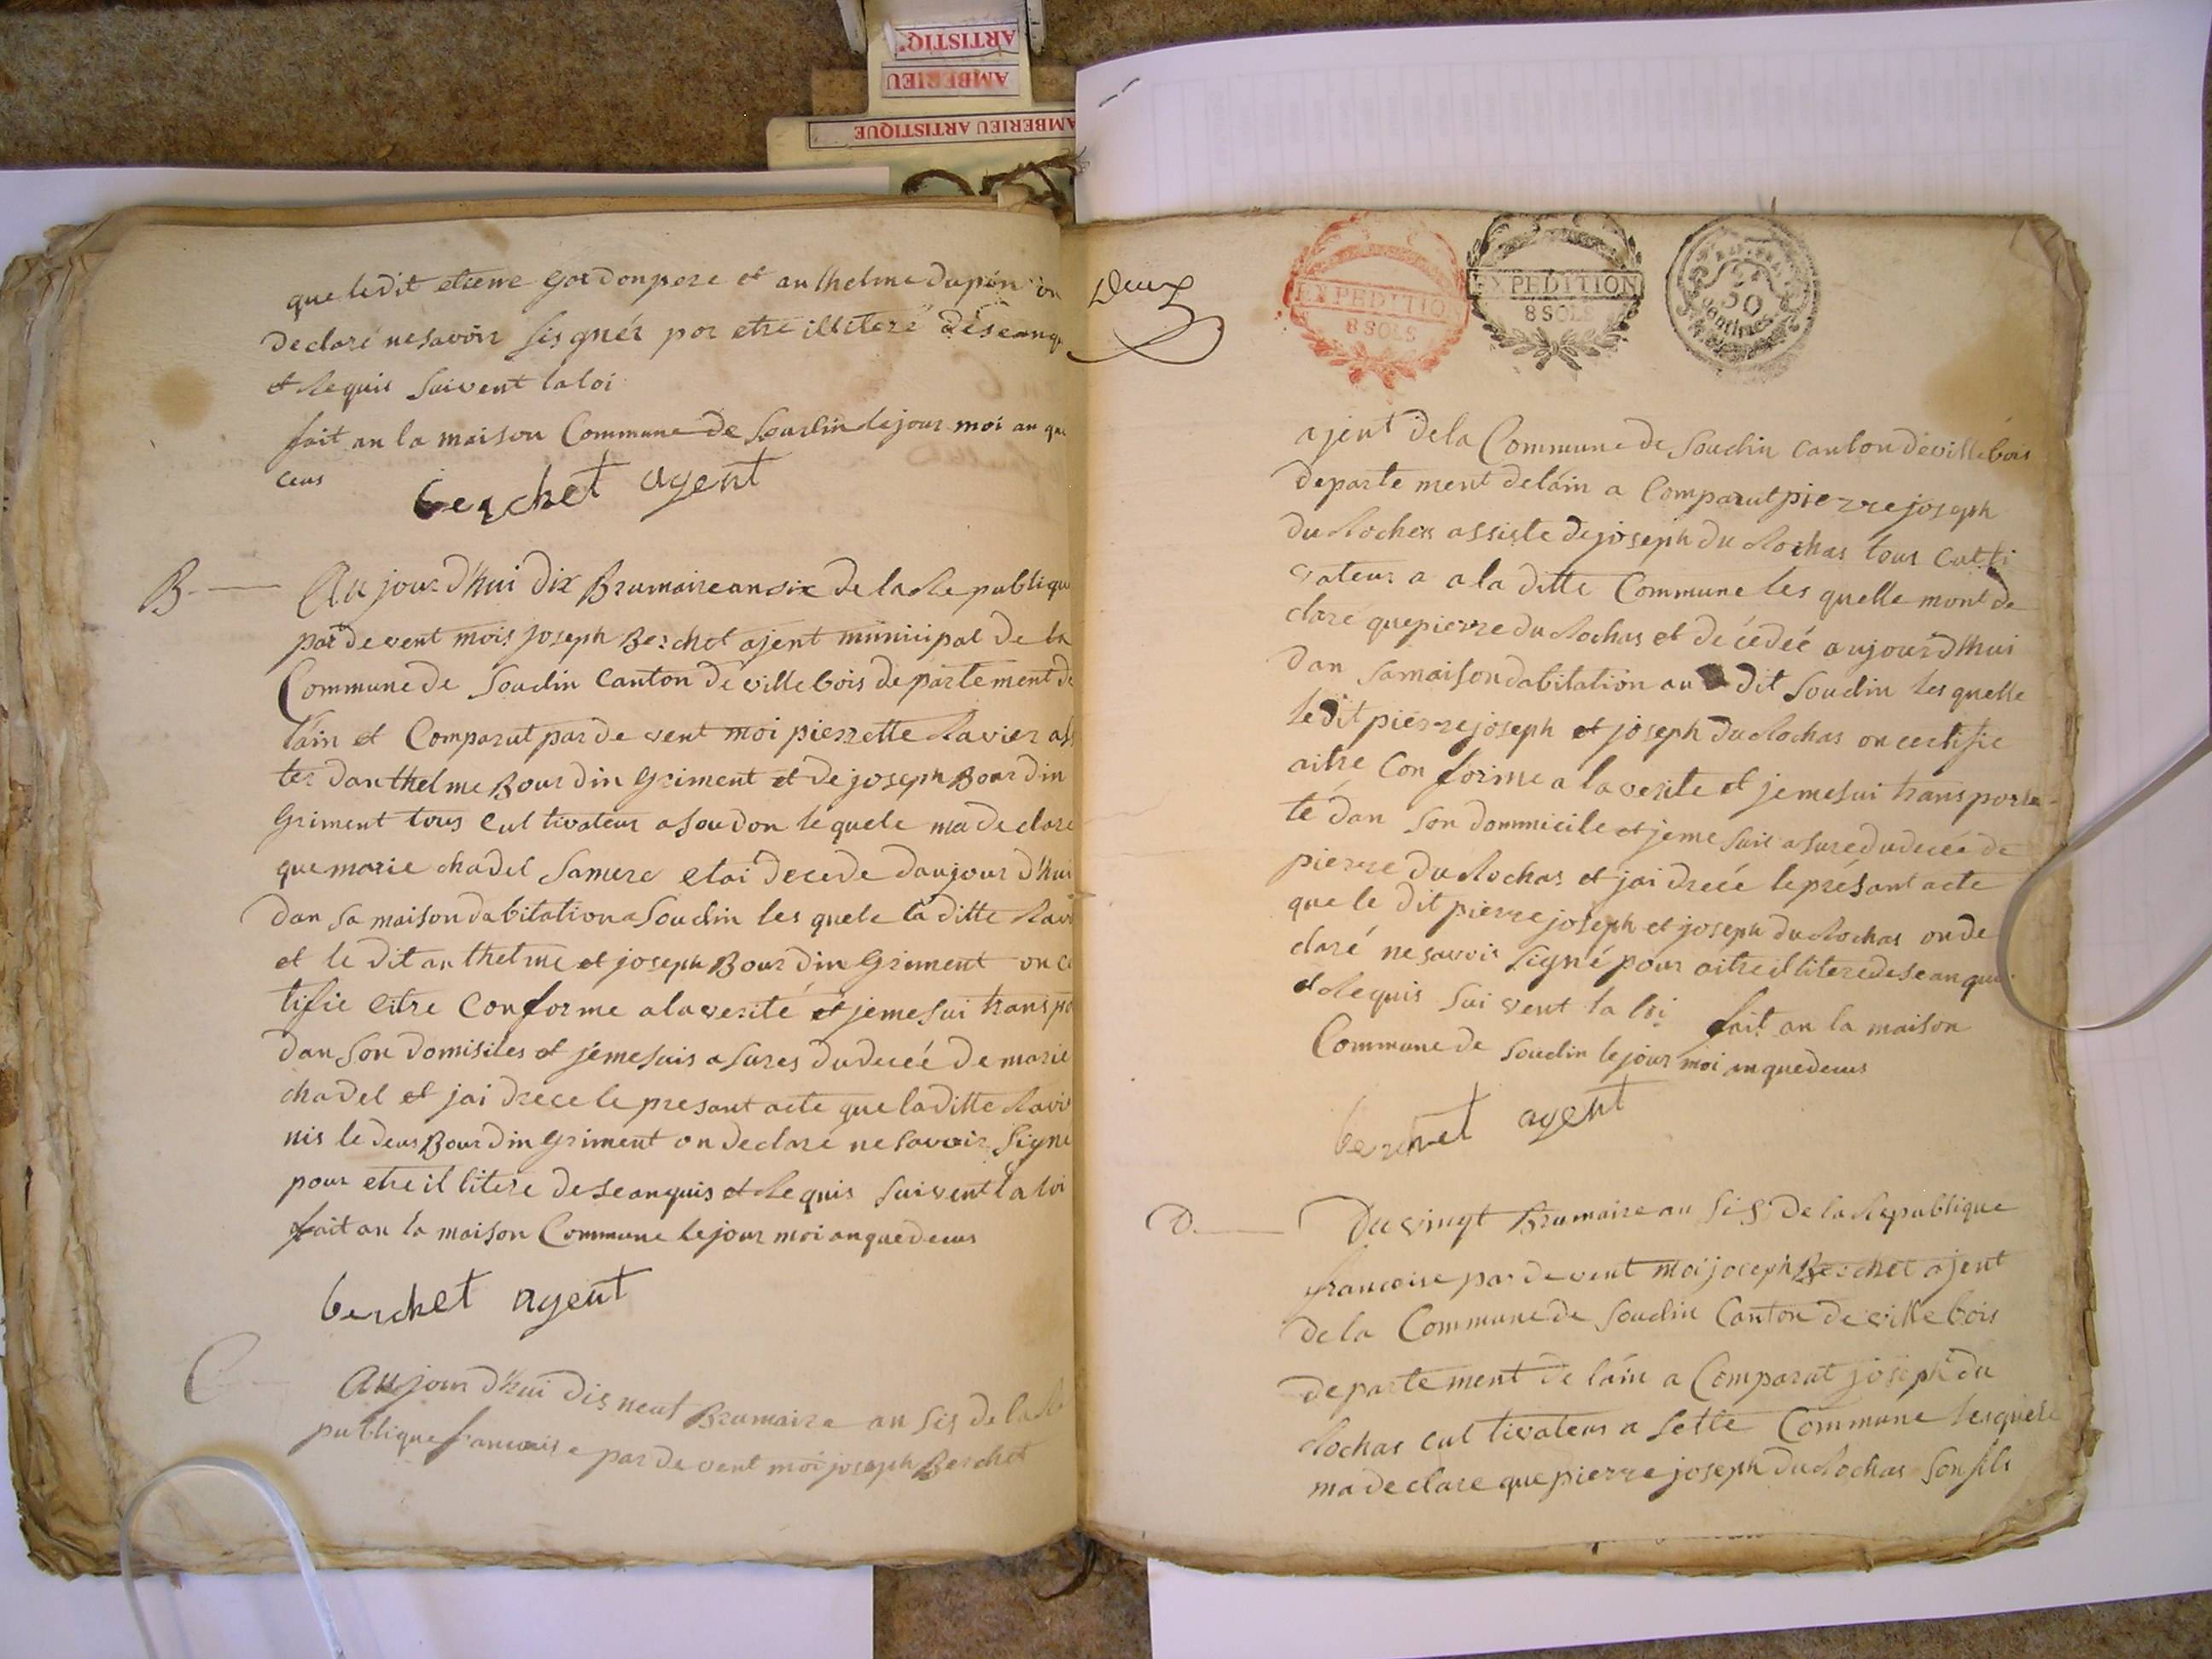 ARTISTIQ
AMBERIEU
AMBERIEU ARTISTIQUE
que ledit etiene gordon pere et anthelme dupon on
declaré ne savoir sisgnér por etre illiteré déseanq
et Requis suivent la loi
fait an la maison Commune de Soudin le jour moi an que
ceus
berchet agent
B. Au jourd'hui dix Brumaire an six de la Re publique
par devent mois joseph Berchet ajent municipal de la
Commune de Soudin canton de villebois departement de
l'ain et Comparut par de vent moi pierrette Ravier ass
ter danthelme Bourdin Griment et de joseph Bourdin
Griment tous cul tivateur a Soudon le quele ma declare
que marie chadel Samere etai decede daujour d'hui
dan sa maison dabitation a Soudin les quele la ditte Ravi
et le dit anthelme et joseph Bourdin Griment on ce
tifie eitre Conforme a la verité et je me sui transpo
dan son domisiles et jeme suis a sures du deceé de marie
chadel et jai drece le presant acte que la ditte Ravi
nis le deus Bourdin Griment on declare ne savoir Signe
pour etre il litere de seanquis et Re quis suivent la loi
fait an la maison Commune le jour moi an que deus
berchet agent
C Au jour d'hui dis neuf Brumaire an sis de la Re
publique francaise par de vent moi joseph Berchet
Deux
EXPEDITION
8 SOLS
EXPEDITION
8 SOLS
50
centimes
ajent de la Commune de Soudin canton de villebois
departe ment de lain a Comparut pierre joseph
du Rocher assiste de joseph du Rochas tous culti
vateur a a la ditte Commune les quelle mont de
claré que pierre du Rochas et décedéé aujourd'hui
dan sa maison dabitation au dit Soudin les quelle
le dit pierre joseph et joseph du Rochas on certifie
aitre Con forme a la verite et je me sui transporte
té dan son dommicile et jeme suis a sure du deceé de
pierre du Rochas et jai drecé le présant acte
que le dit pierre joseph et joseph du Rochas on de
claré ne savoir Signé pour aitre il litere de sean quis
et Requis sui vent la loi fait an la maison
Commune de Soudin le jour moi an que deus
berchet agent
D. Du vingt Brumaire an sis de la Republique
francoise par de vent moi joseph Berchet ajent
de la Commune de Soudin Canton de ville bois
departe ment de lain a Comparut joseph du
Rochas cul tivateur a sette Commune lesquele
ma declare que pierre joseph du Rochas son fils